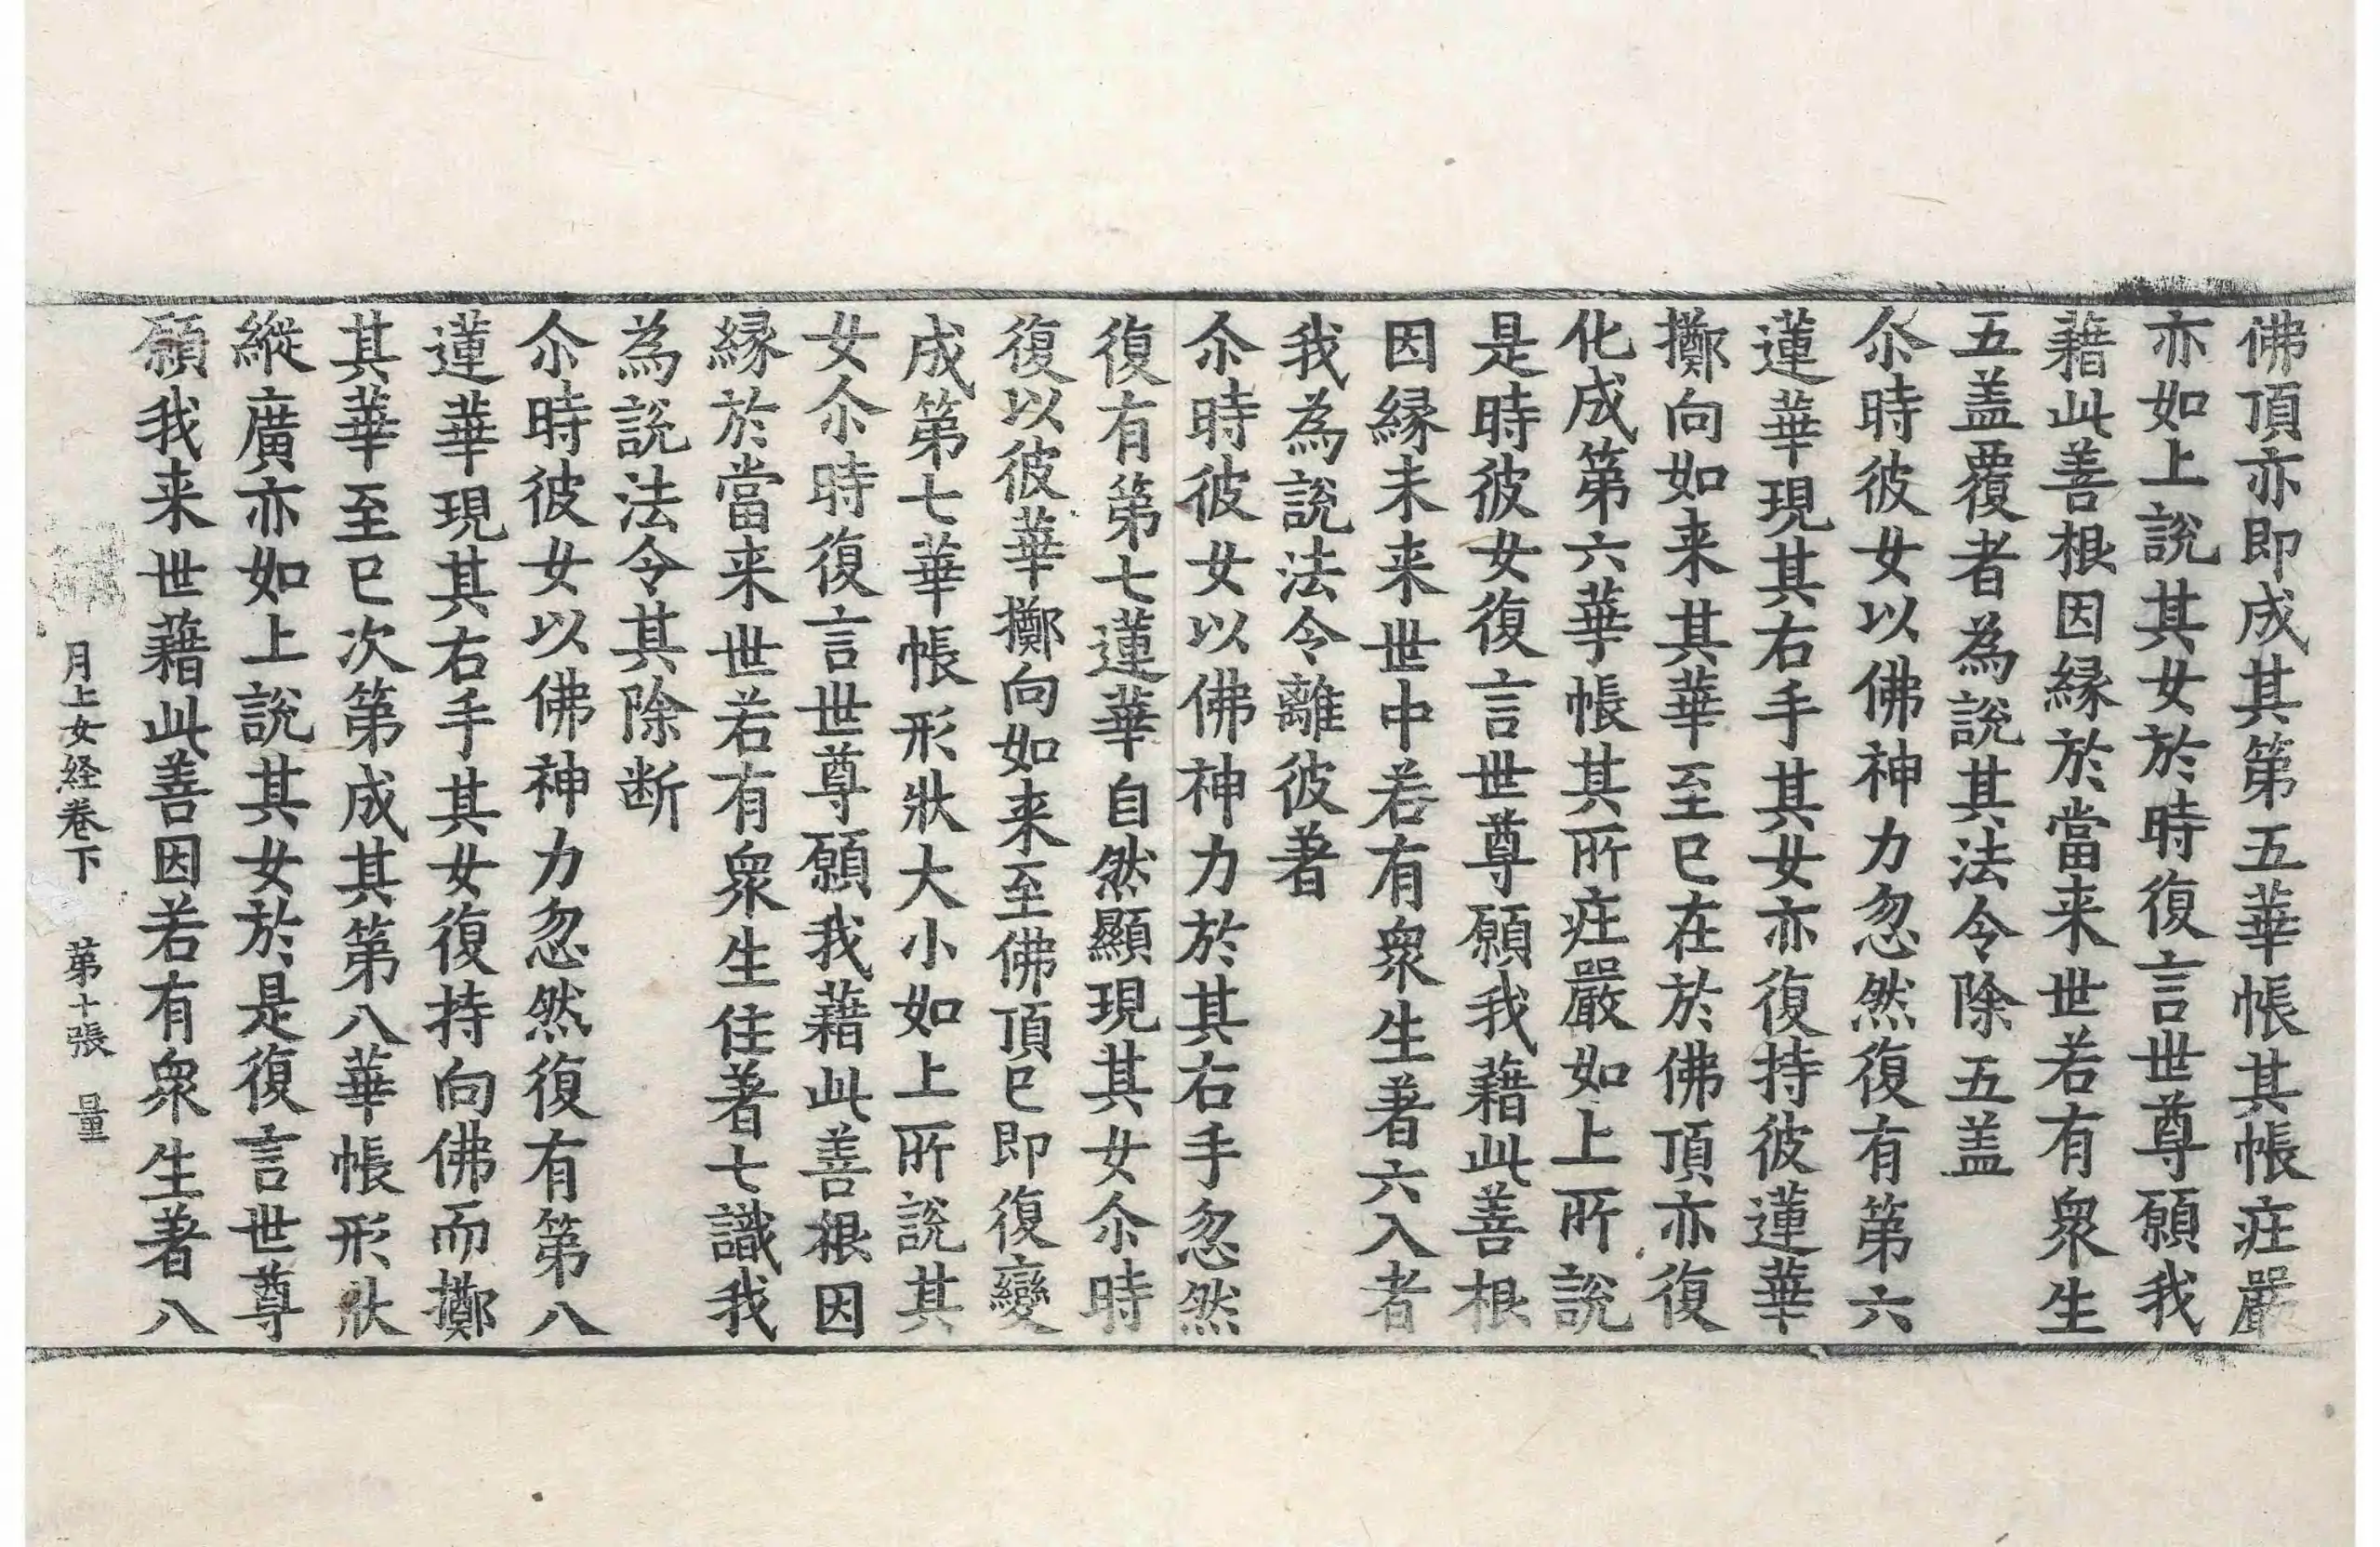 佛頂亦即成其第五華帳其帳㽵嚴
亦如上說其女於時復言世尊願我
藉此善根因縁於當来世若有衆生
五盖覆者為說其法令除五盖
尒時彼女以佛神力忽然復有第六
蓮華現其右手其女亦復持彼蓮華
擲向如来其華至已在於佛頂亦復
化成第六華帳其所㽵嚴如上所說
是時彼女復言世尊願我藉此善根
因縁未来世中若有衆生著六入者
我為說法令離彼著
尒時彼女以佛神力於其右手忽然
復有第七蓮華自然顯現其女尒時
復以彼華擲向如来至佛頂已即復變
成第七華帳形狀大小如上所說其
女尒時復言世尊願我藉此善根因
縁於當来世若有衆生住著七識我
為說法令其除断
尒時彼女以佛神力忽然復有第八
蓮華現其右手其女復持向佛而擲
其華至已次第成其第八華帳形狀
縱廣亦如上說其女於是復言世尊
願我来世藉此善因若有衆生著八
月上女経卷下 第十張 量